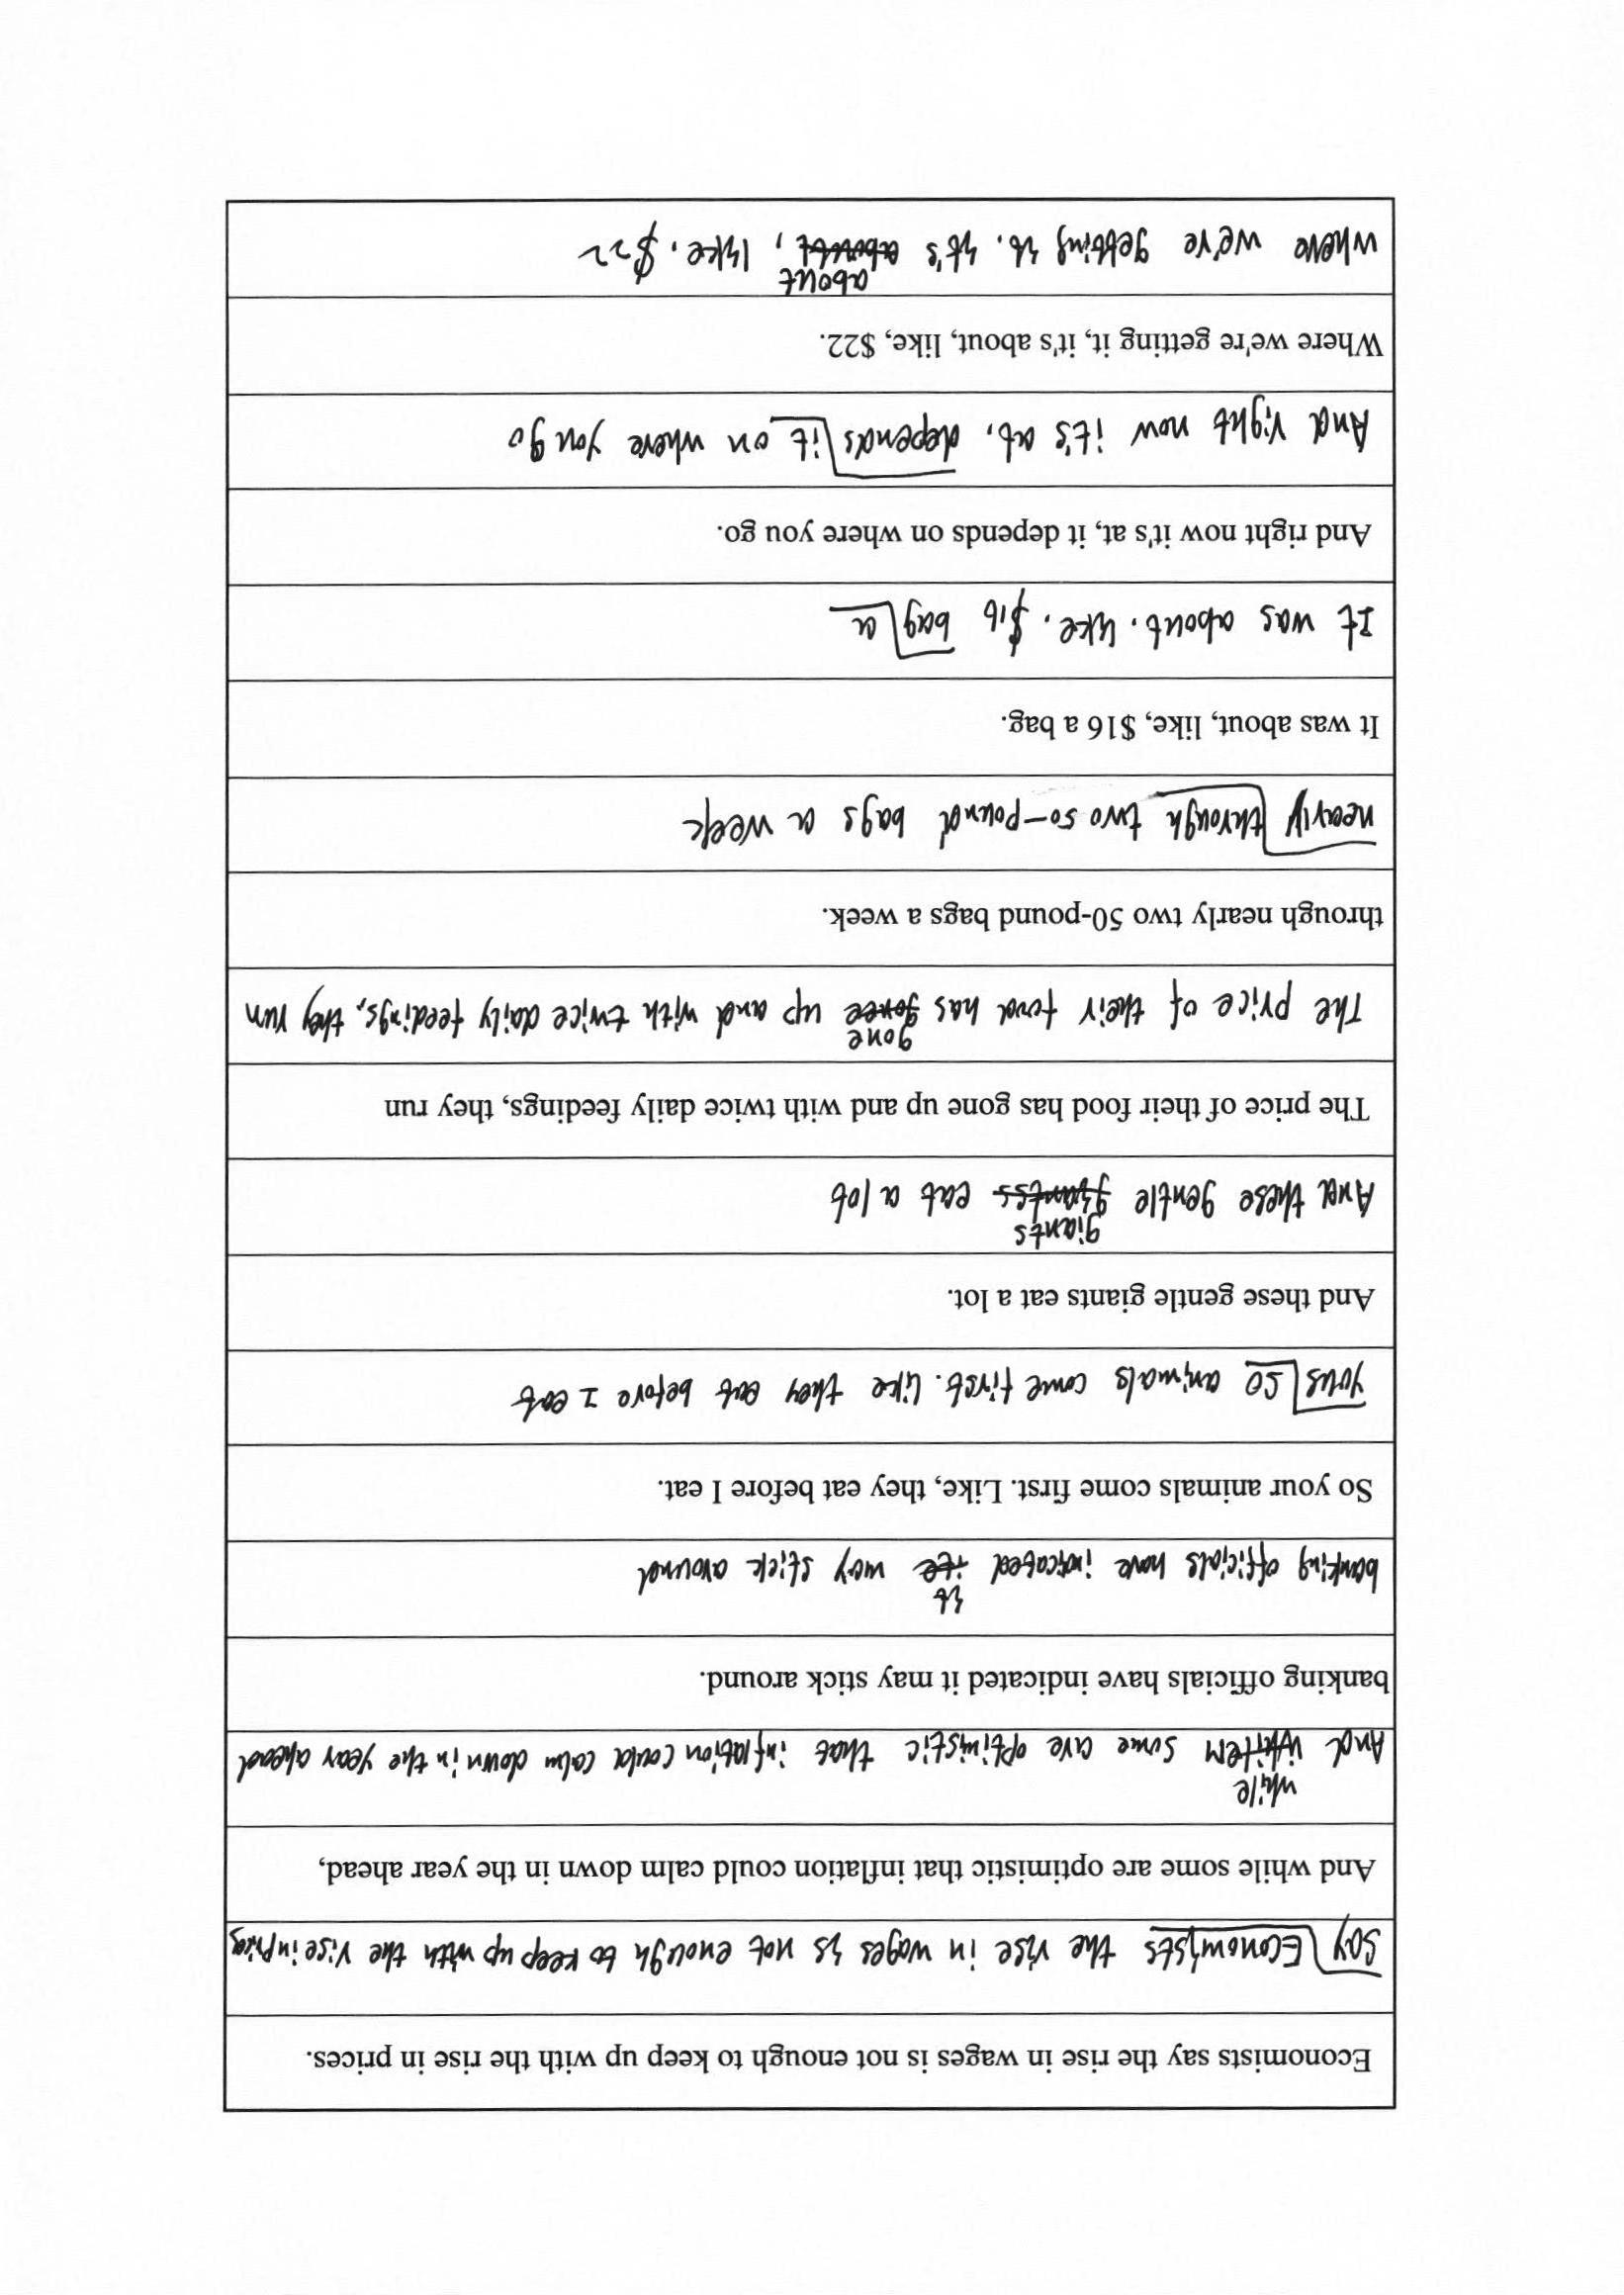 Economists say the rise in wages is not enough to keep up with the rise in prices.
Say Economists the rise in wages is not enough to keep up with the rise in prices
And while some are optimistic that inflation could calm down in the year ahead,
And while some are optimistic that inflation could calm down in the year ahead
banking officials have indicated it may stick around.
banking officials have indicated it may stick around
So your animals come first. Like, they eat before I eat.
yous so animals come first. like they eat before I eat
And these gentle giants eat a lot.
And these gentle giants eat a lot
The price of their food has gone up and with twice daily feedings, they run
The price of their food has gone up and with twice daily feedings, they run
through nearly two 50-pound bags a week.
nearly through two 50-pound bags a week
It was about, like, $16 a bag.
It was about. like. $16 bag a
And right now it's at, it depends on where you go.
And right now it's at, depends it on where you go
Where we're getting it, it's about, like, $22.
where we're getting it. it's about, like. $22